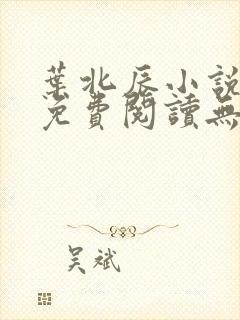 葉北辰小說
免費閱讀無
吴斌